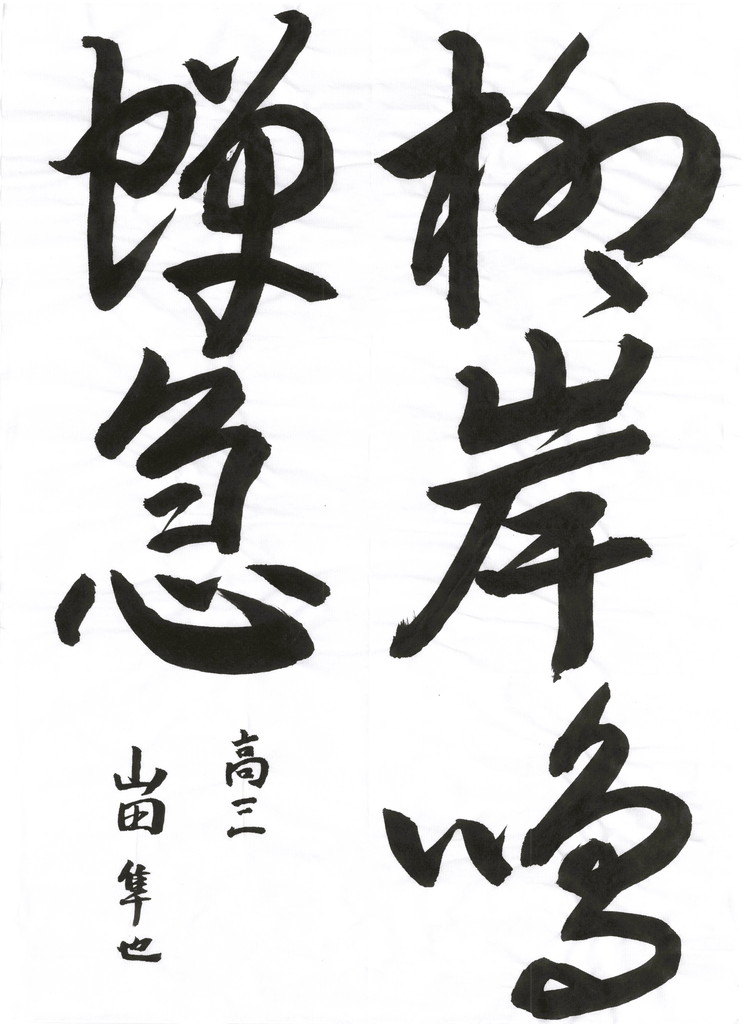 柳岸鳴
蝉急
高三
山田隼也